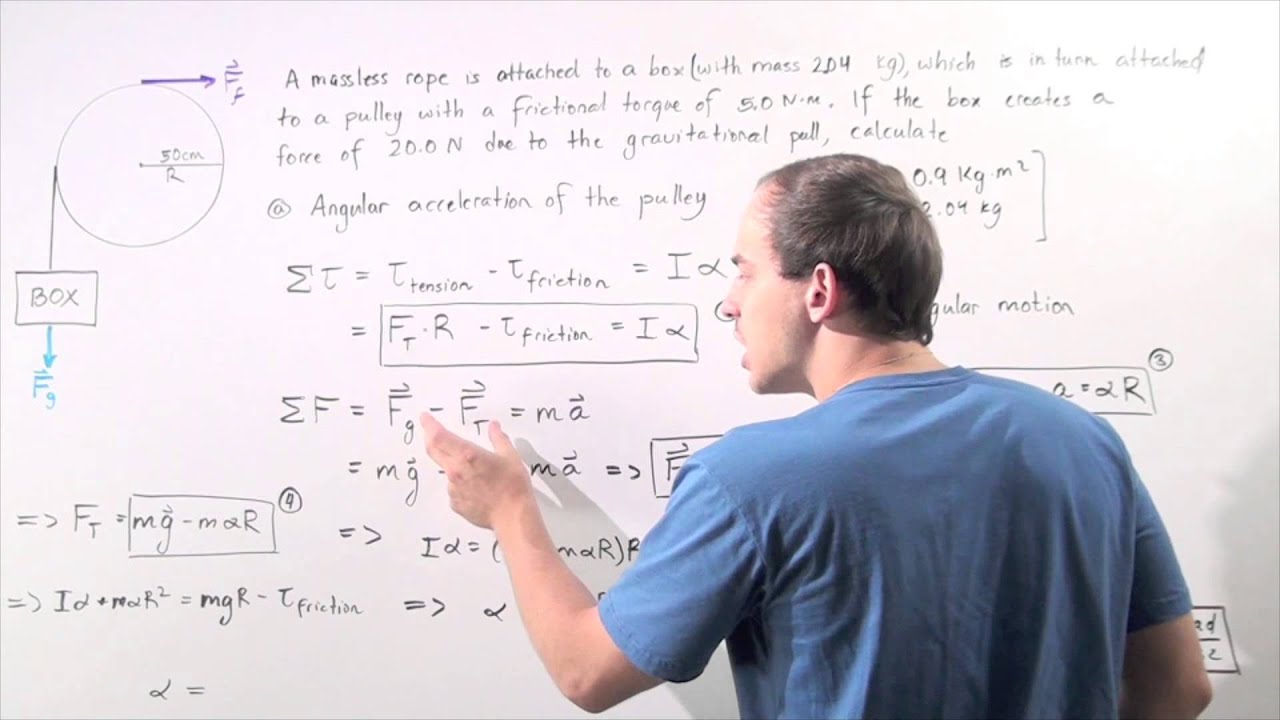 F⃗_f
A massless rope is attached to a box (with mass 2.04 kg), which is in turn attached
to a pulley with a frictional torque of 5.0 N·m. If the box creates a
force of 20.0 N due to the gravitational pull, calculate
50cm
R
0.9 Kg·m²
2.04 kg
ⓐ Angular acceleration of the pulley
Στ = τ_tension - τ_friction = Iα
BOX
= F_T·R - τ_friction = Iα
motion
F⃗_g
ΣF = F⃗_g - F⃗_T = ma⃗
a = αR ③
= mg⃗ - ma⃗ => F⃗
=> F_T = mg⃗ - mαR ④
=> Iα = ( mαR)R
=> Iα + mαR² = mgR - τ_friction => α
α =